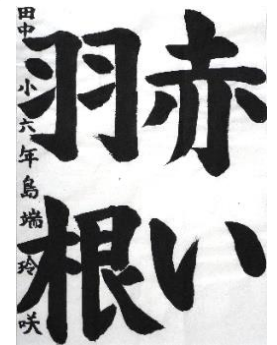 赤い
羽根
田中小六年島端玲咲